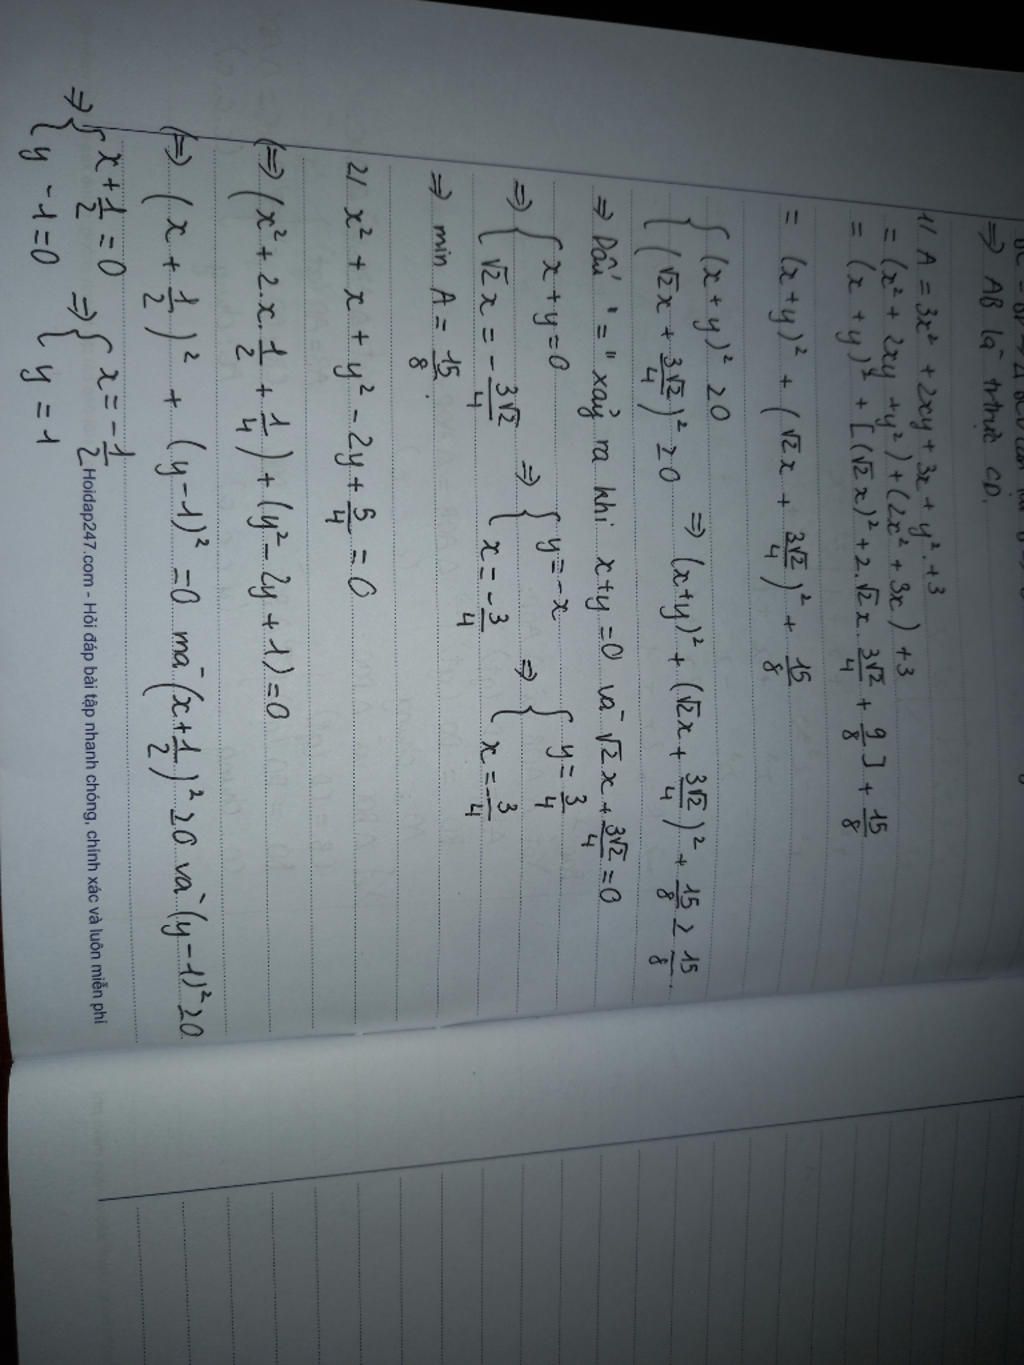 ⇒ AB là trung trực CD.
1/ A = 3x² + 2xy + 3x + y² + 3
= (x² + 2xy + y²) + (2x² + 3x) + 3
= (x + y)² + [(√2x)² + 2.√2x.3√2/4 + 9/8] + 15/8
= (x+y)² + (√2x + 3√2/4)² + 15/8
{ (x+y)² ≥0
{ (√2x + 3√2/4)² ≥0 ⇒ (x+y)² + (√2x + 3√2/4)² + 15/8 ≥ 15/8.
⇒ Dấu "=" xảy ra khi x+y=0 và √2x + 3√2/4 = 0
⇒ { x+y=0 ⇒ { y=-x ⇒ { y=3/4
{ √2x = -3√2/4 { x=-3/4 { x=-3/4
⇒ min A = 15/8.
2/ x² + x + y² - 2y + 5/4 = 0
(⇒) (x² + 2.x.1/2 + 1/4) + (y² - 2y + 1) = 0
(⇒) (x + 1/2)² + (y-1)² = 0 mà (x+1/2)² ≥0 và (y-1)² ≥0
⇒ { x+1/2 = 0 ⇒ { x=-1/2
{ y-1=0 { y=1
Hoidap247.com - Hỏi đáp bài tập nhanh chóng, chính xác và luôn miễn phí